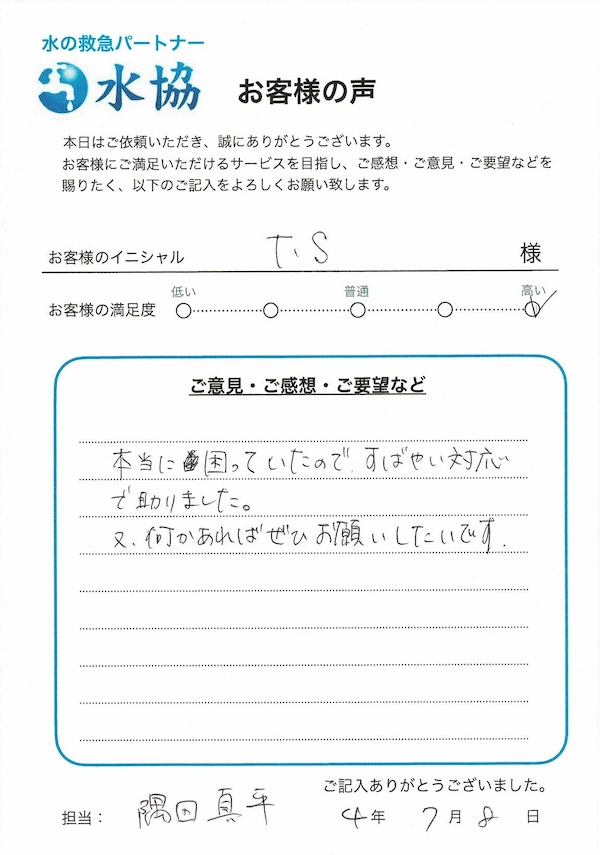 水の救急パートナー
水協 お客様の声
本日はご依頼いただき、誠にありがとうございます。
お客様にご満足いただけるサービスを目指し、ご感想・ご意見・ご要望などを
賜りたく、以下のご記入をよろしくお願い致します。
お客様のイニシャル T.S 様
低い 普通 高い
お客様の満足度
ご意見・ご感想・ご要望など
本当に困っていたので、すばやい対応
で助りました。
又、何かあればぜひお願いしたいです.
ご記入ありがとうございました。
担当： 隅田真平 4年 7月8日